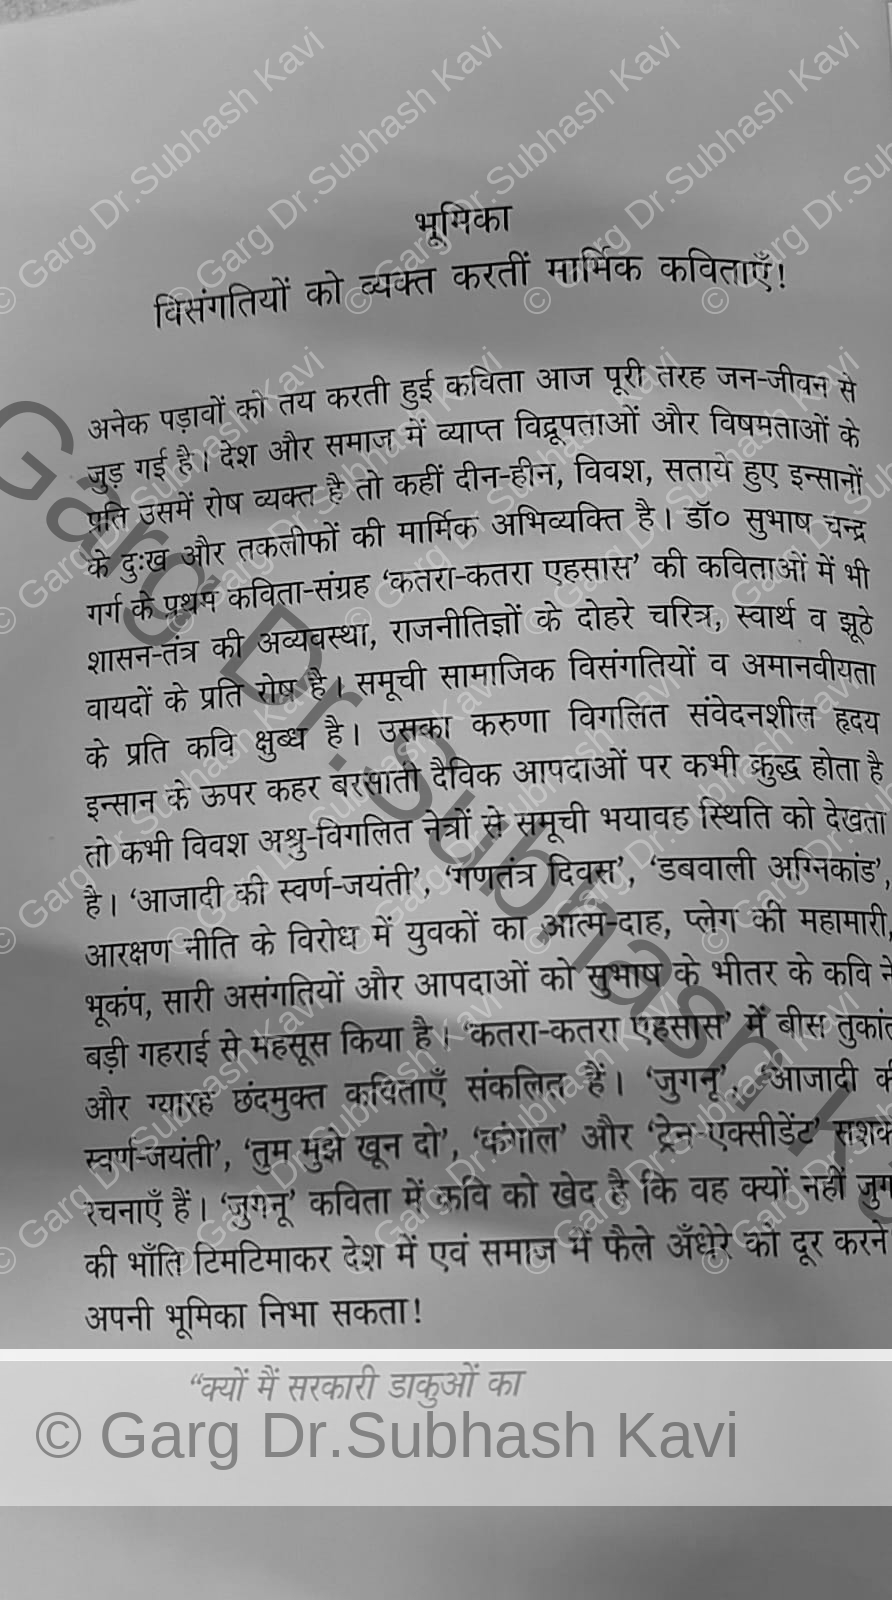 भूमिका
विसंगतियों को व्यक्त करतीं मार्मिक कविताएँ!
अनेक पड़ावों को तय करती हुई कविता आज पूरी तरह जन-जीवन से
जुड़ गई है। देश और समाज में व्याप्त विद्रूपताओं और विषमताओं के
प्रति उसमें रोष व्यक्त है तो कहीं दीन-हीन, विवश, सताये हुए इन्सानों
के दुःख और तकलीफों की मार्मिक अभिव्यक्ति है। डॉ० सुभाष चन्द्र
गर्ग के प्रथम कविता-संग्रह ‘कतरा-कतरा एहसास’ की कविताओं में भी
शासन-तंत्र की अव्यवस्था, राजनीतिज्ञों के दोहरे चरित्र, स्वार्थ व झूठे
वायदों के प्रति रोष है। समूची सामाजिक विसंगतियों व अमानवीयता
के प्रति कवि क्षुब्ध है। उसका करुणा विगलित संवेदनशील हृदय
इन्सान के ऊपर कहर बरसाती दैविक आपदाओं पर कभी क्रुद्ध होता है
तो कभी विवश अश्रु-विगलित नेत्रों से समूची भयावह स्थिति को देखता
है। ‘आजादी की स्वर्ण-जयंती’, ‘गणतंत्र दिवस’, ‘डबवाली अग्निकांड’,
आरक्षण नीति के विरोध में युवकों का आत्म-दाह, प्लेग की महामारी,
भूकंप, सारी असंगतियों और आपदाओं को सुभाष के भीतर के कवि ने
बड़ी गहराई से महसूस किया है। ‘कतरा-कतरा एहसास’ में बीस तुकांत
और ग्यारह छंदमुक्त कविताएँ संकलित हैं। ‘जुगनू’, ‘आजादी की
स्वर्ण-जयंती’, ‘तुम मुझे खून दो’, ‘कंगाल’ और ‘ट्रेन-एक्सीडेंट’
रचनाएँ हैं। ‘जुगनू’ कविता में कवि को खेद है कि वह क्यों नहीं
की भाँति टिमटिमाकर देश में एवं समाज में फैले अँधेरे को दूर करने
अपनी भूमिका निभा सकता!
“क्यों मैं सरकारी डाकुओं का
© Garg Dr.Subhash Kavi